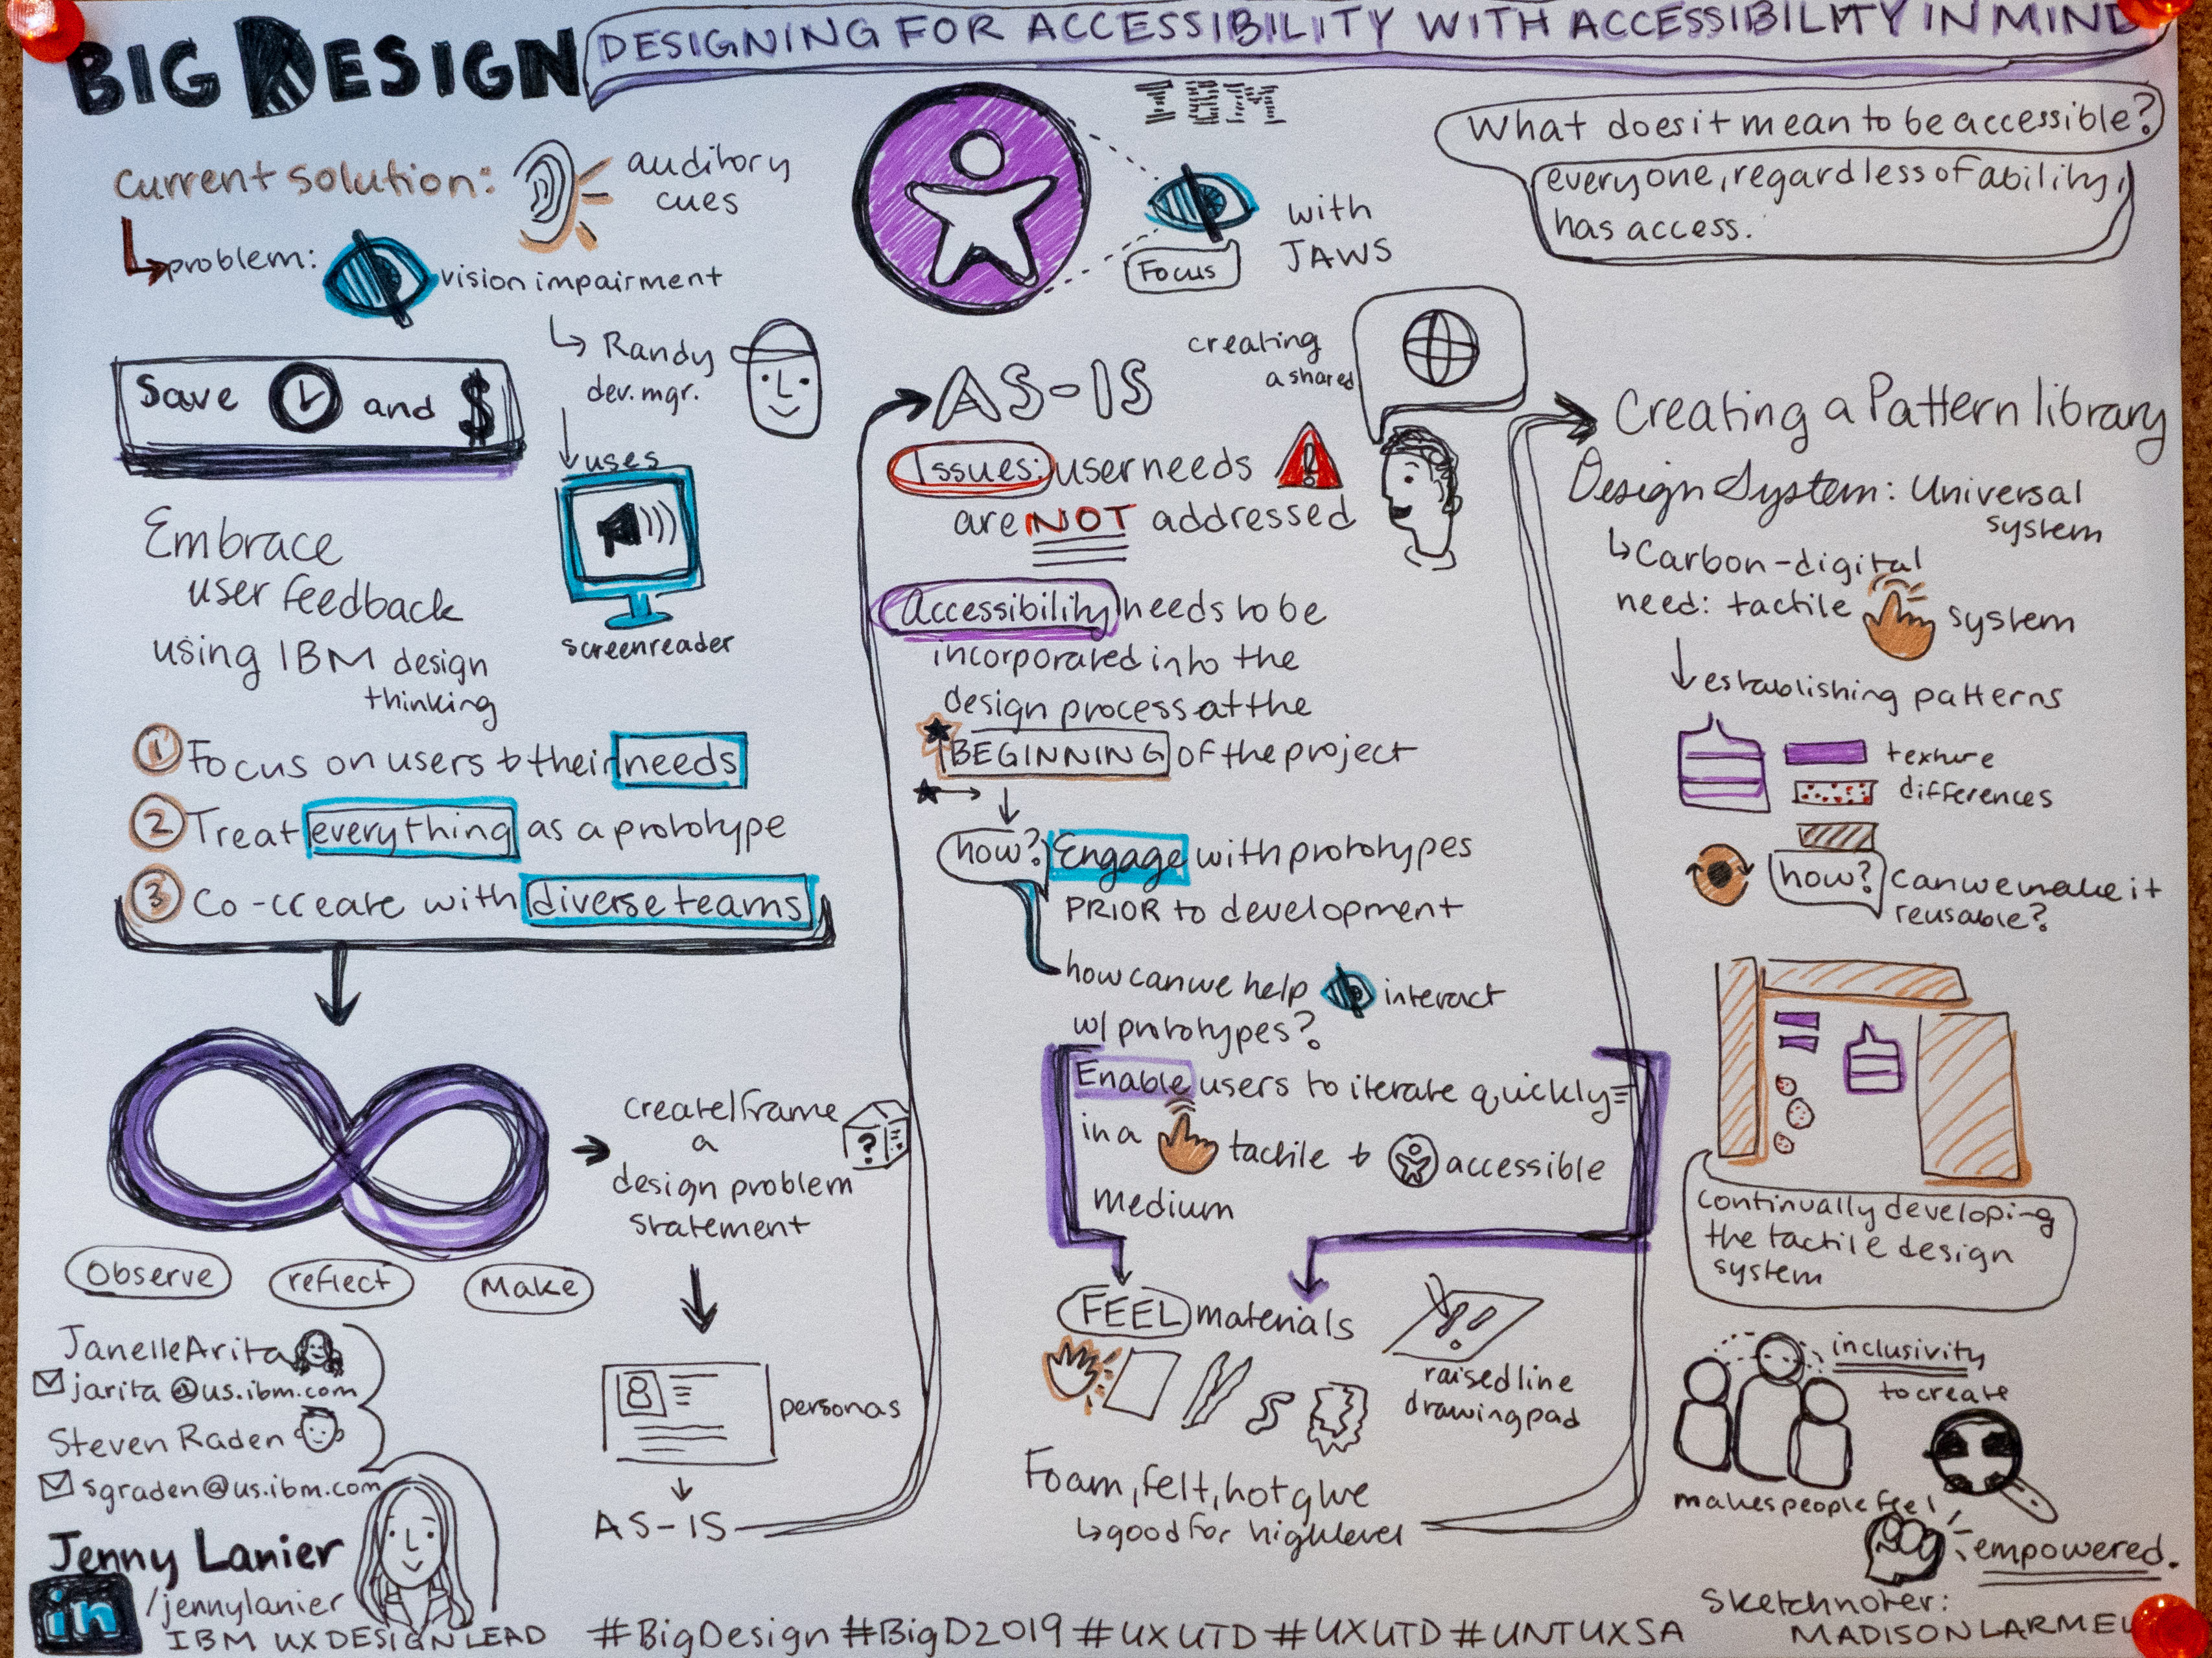 BIG DESIGN
DESIGNING FOR ACCESSIBILITY WITH ACCESSIBILITY IN MIND
IBM
What does it mean to be accessible?
everyone, regardless of ability,
has access.
current solution:
auditory
cues
problem:
vision impairment
Focus
with
JAWS
Randy
dev. mgr.
uses
screenreader
Save and $
Embrace
user feedback
using IBM design
thinking
1 Focus on users & their needs
2 Treat everything as a prototype
3 Co-create with diverse teams
Observe
reflect
Make
create/frame
a
design problem
statement
?
personas
AS-IS
Janelle Arita
jarita@us.ibm.com
Steven Raden
sgraden@us.ibm.com
Jenny Lanier
in /jennylanier
IBM UX DESIGN LEAD
AS-IS
creating
a shared
Issues: user needs
are NOT addressed
Accessibility needs to be
incorporated into the
design process at the
BEGINNING of the project
how? Engage with prototypes
PRIOR to development
how can we help interact
w/ prototypes?
Enable users to iterate quickly
in a tactile & accessible
medium
FEEL materials
raised line
drawing pad
Foam, felt, hot glue
good for high level
Creating a Pattern library
Design System: Universal
system
Carbon-digital
need: tactile system
establishing patterns
texture
differences
how? can we make it
reusable?
continually developing
the tactile design
system
inclusivity
to create
makes people feel
empowered.
Sketchnoter:
MADISON LARMEU
#BigDesign #BigD2019 #UXUTD #UXUTD #UNTUXSA